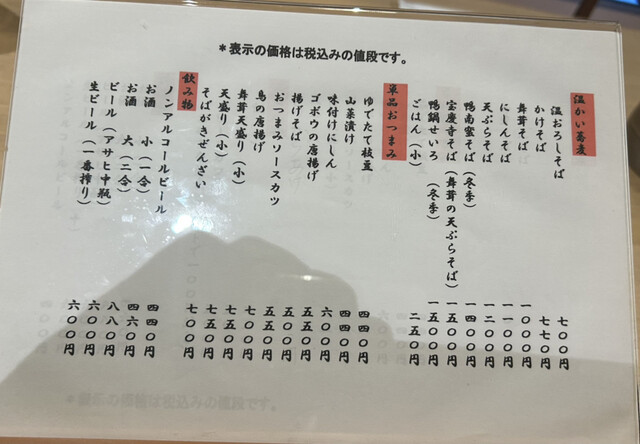 ＊表示の価格は税込みの値段です。
温かい蕎麦
温おろしそば 七〇〇円
かけそば 七七〇円
舞茸そば 一〇〇〇円
にしんそば 一一〇〇円
天ぷらそば 一二〇〇円
鴨南蛮そば（冬季） 一四〇〇円
宝慶寺そば（舞茸の天ぷらそば） 一五〇〇円
鴨鍋せいろ（冬季） 一五〇〇円
ごはん（小） 二五〇円
単品おつまみ
ゆでたて枝豆 四四〇円
山菜漬け 四四〇円
味付けにしん 六〇〇円
ゴボウの唐揚げ 五五〇円
揚げそば 五五〇円
おつまみソースカツ 五五〇円
鳥の唐揚げ 七〇〇円
舞茸天盛り（小） 七五〇円
天盛り（小） 七五〇円
そばがきぜんざい 七〇〇円
飲み物
ノンアルコールビール 四四〇円
お酒 小（一合） 四六〇円
お酒 大（二合） 八八〇円
ビール（アサヒ中瓶） 六〇〇円
生ビール（一番搾り） 六〇〇円
＊表示の価格は税込みの値段です。